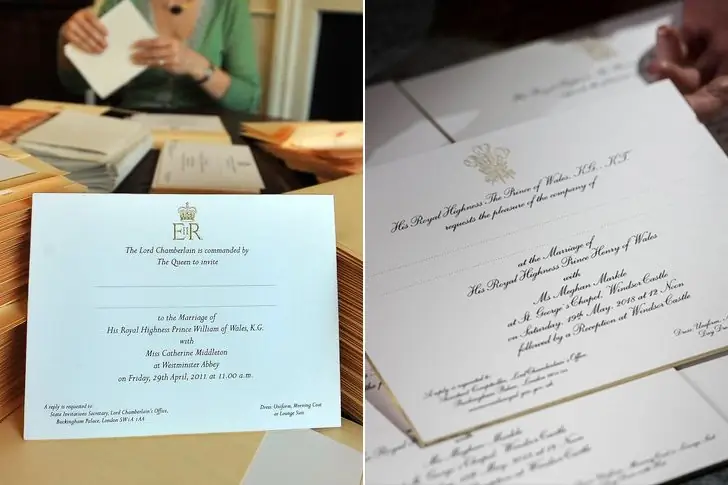 EIIR
The Lord Chamberlain is commanded by
The Queen to invite
to the Marriage of
His Royal Highness Prince William of Wales, K.G.
with
Miss Catherine Middleton
at Westminster Abbey
on Friday, 29th April, 2011 at 11.00 a.m.
A reply is requested to
State Invitations Secretary, Lord Chamberlain's Office,
Buckingham Palace, London SW1A 1AA
Dress: Uniform, Morning Coat
or Lounge Suit
His Royal Highness The Prince of Wales, K.G., K.T.
requests the pleasure of the company of
at the Marriage of
His Royal Highness Prince Henry of Wales
with
Ms Meghan Markle
at St George's Chapel, Windsor Castle
on Saturday, 19th May, 2018 at 12 Noon
followed by a Reception at Windsor Castle
Dress: Uniform,
Day
A reply is requested to:
Comptroller, Lord Chamberlain's Office,
Buckingham Palace, London
Ms Meghan Markle
at St George's Chapel, Windsor Castle
May, 2018 at 12 Noon
at Windsor Castle